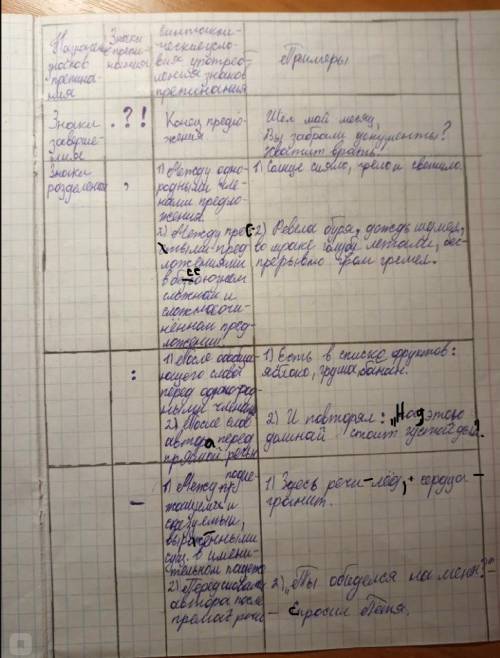 Назначение
знаков
препина-
ния
Знаки
препи-
нания
синтакси-
ческие усло-
вия употреб-
ления знаков
препинания
Примеры
Знаки
заверше-
ния
. ? !
Конец предло-
жения
Шёл май месяц,
Вы забрали документы?
Хватит врать.
Знаки
разделения
,
1) Между одно-
родными чле-
нами предло-
жения.
1) Солнце сияло, грело и светило.
2) Между прос-
тыми пред-
ложениями
в бессоюзном
сложном и
сложносочи-
нённом пред-
ложении.
2) Ревела буря, дождь шумел,
во мраке голубь летали, бес-
прерывно гром гремел.
:
1) После обобща-
ющего слова
перед однород-
ными членами
2) После слов
автора перед
прямой речью
1) Есть в списке фруктов:
яблоко, груша, банан.
2) И повторял: "Над этой
долиной стоит густой дым.
-
1) Между подле-
жащим и
сказуемым,
выраженными
сущ. в имени-
тельном падеже
2) Перед словами
автора после
прямой речи
1) Здесь речи-лёд, сердца-
гранит.
2) "Ты обиделся на меня?"-
- спросил Петя.